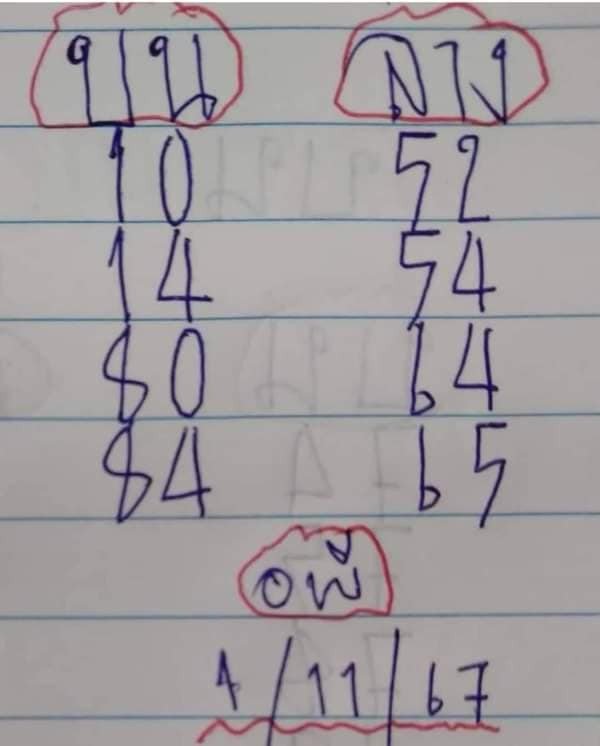 บน ลาง
10 52
14 54
80 64
84 65
อพี
1/11/67